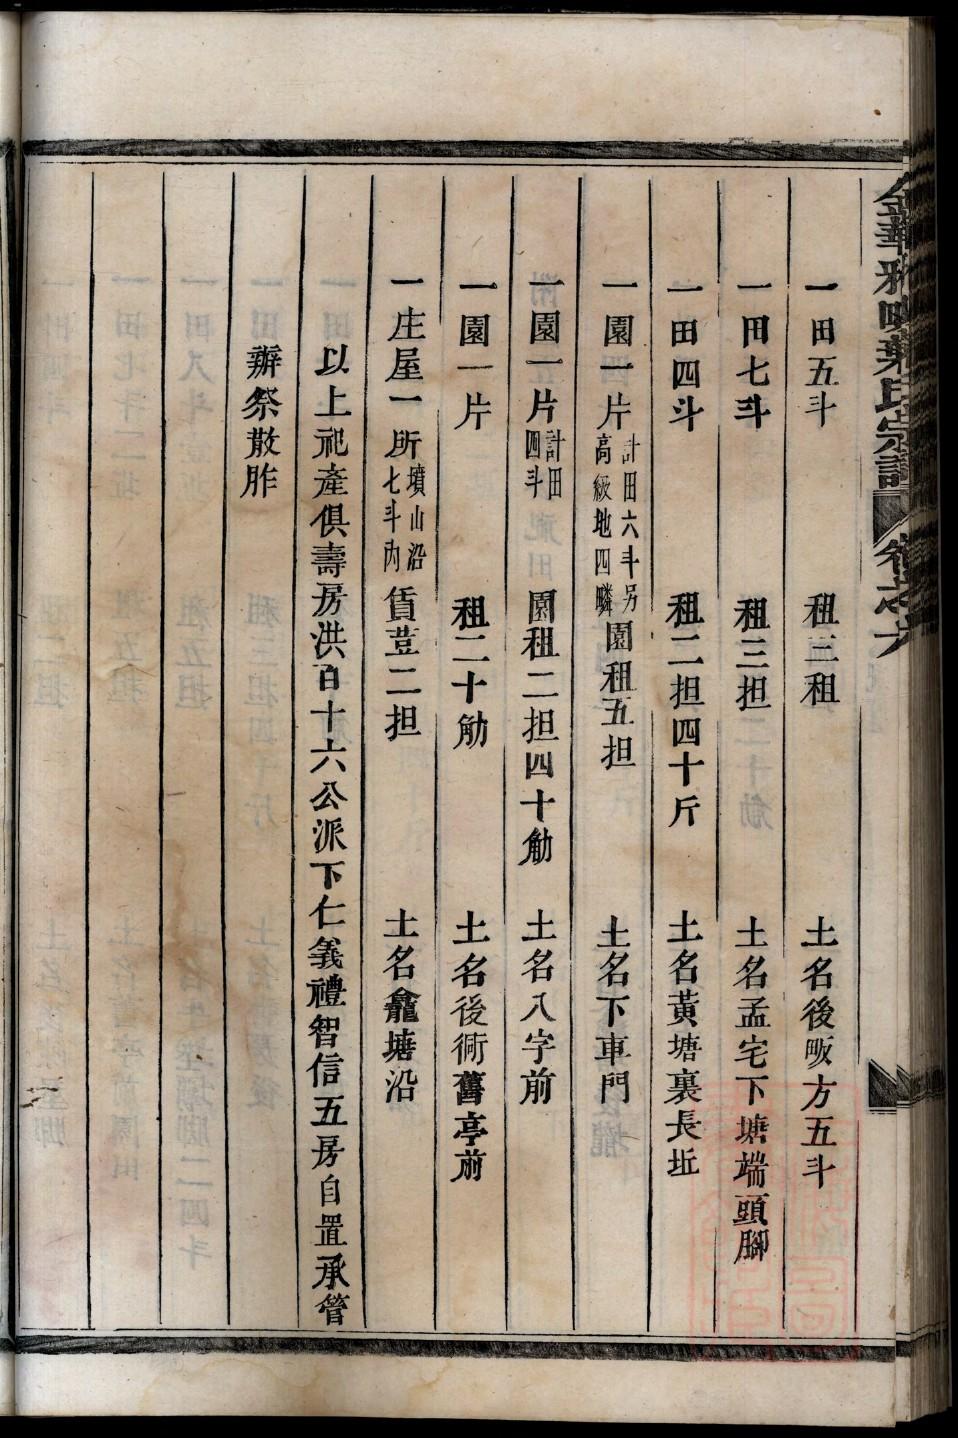 金華雅畈葉氏宗譜 卷之六
一田五斗 租三租 土名後畈方五斗
一田七斗 租三担 土名孟宅下塘端頭腳
一田四斗 租二担四十斤 土名黃塘裏長坵
一園一片 計田六斗另高級地四疄 園租五担 土名下車門
一園一片 計田四斗 園租二担四十觔 土名八字前
一園一片 租二十觔 土名後衕舊亭前
一庄屋一所 墳山沿七斗內 賃荳二担 土名龕塘沿
以上祀產俱壽房洪百十六公派下仁義禮智信五房自置承管
辦祭散胙